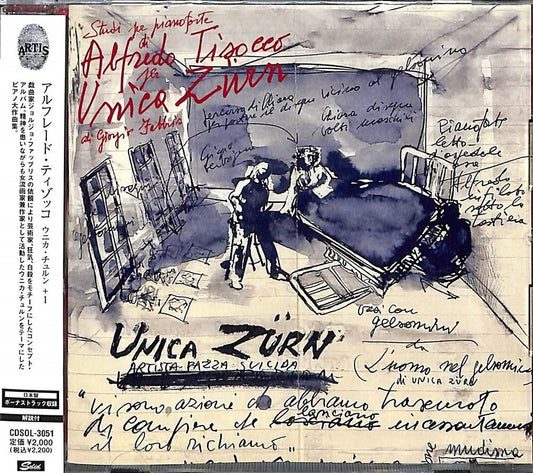 ARTIS
アルフレード・ティゾッコ ウニカ・チュルン +1
戯曲家ジョルジョ・ファッブリスの依頼により芸術家、狂気、自殺をモチーフにしたコンセプト・
アルバム。精神を患いながらも女流画家兼作家として活動したウニカ・チュルンをテーマにした
ピアノ大作曲集。
日本盤
ボーナストラック収録
解説付
CDSOL-3051
定価 ¥2,000
(税込 ¥2,200)
Solid
Studi per pianoforte
di
Alfredo Tisocco
per
Unica Zürn
di Giorgio Fabbris
percorso di Chiara
vicino al gelsomino
Chiara disegna
volti maschili
Pianoforte
letto
ospedale
Alfredo
sotto la
vasi con
gelsomini
da
L'uomo nel gelsomino
di UNICA ZÜRN
UNICA ZÜRN
ARTISTA PAZZA SUICIDA
"Vi sono azioni che abbiamo trascurato
di compiere che lasciano incessantemente
il loro richiamo"